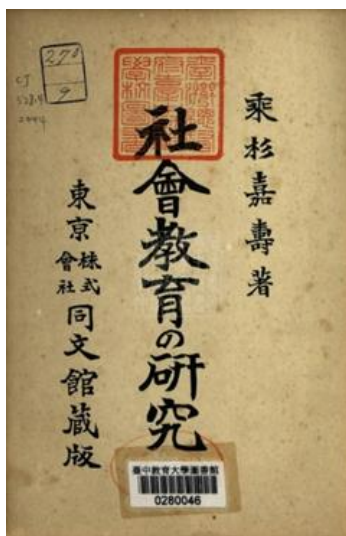 乘杉嘉壽著
社會敎育の研究
東京株式會社同文館藏版
270
9
CJ
臺中教育大學圖書館
0280046